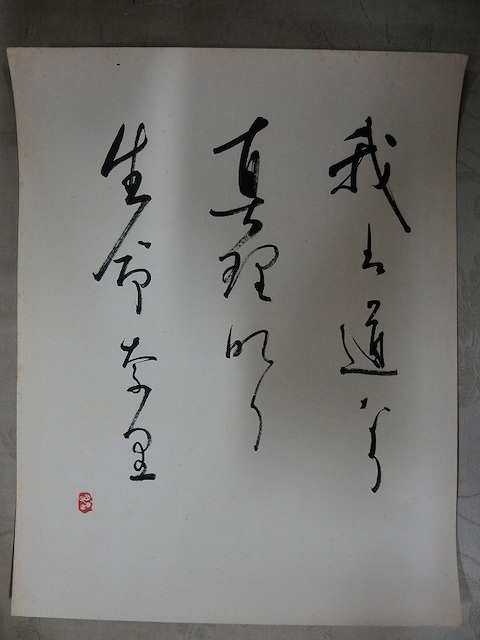 我は道なり
真理なり
生命奈里